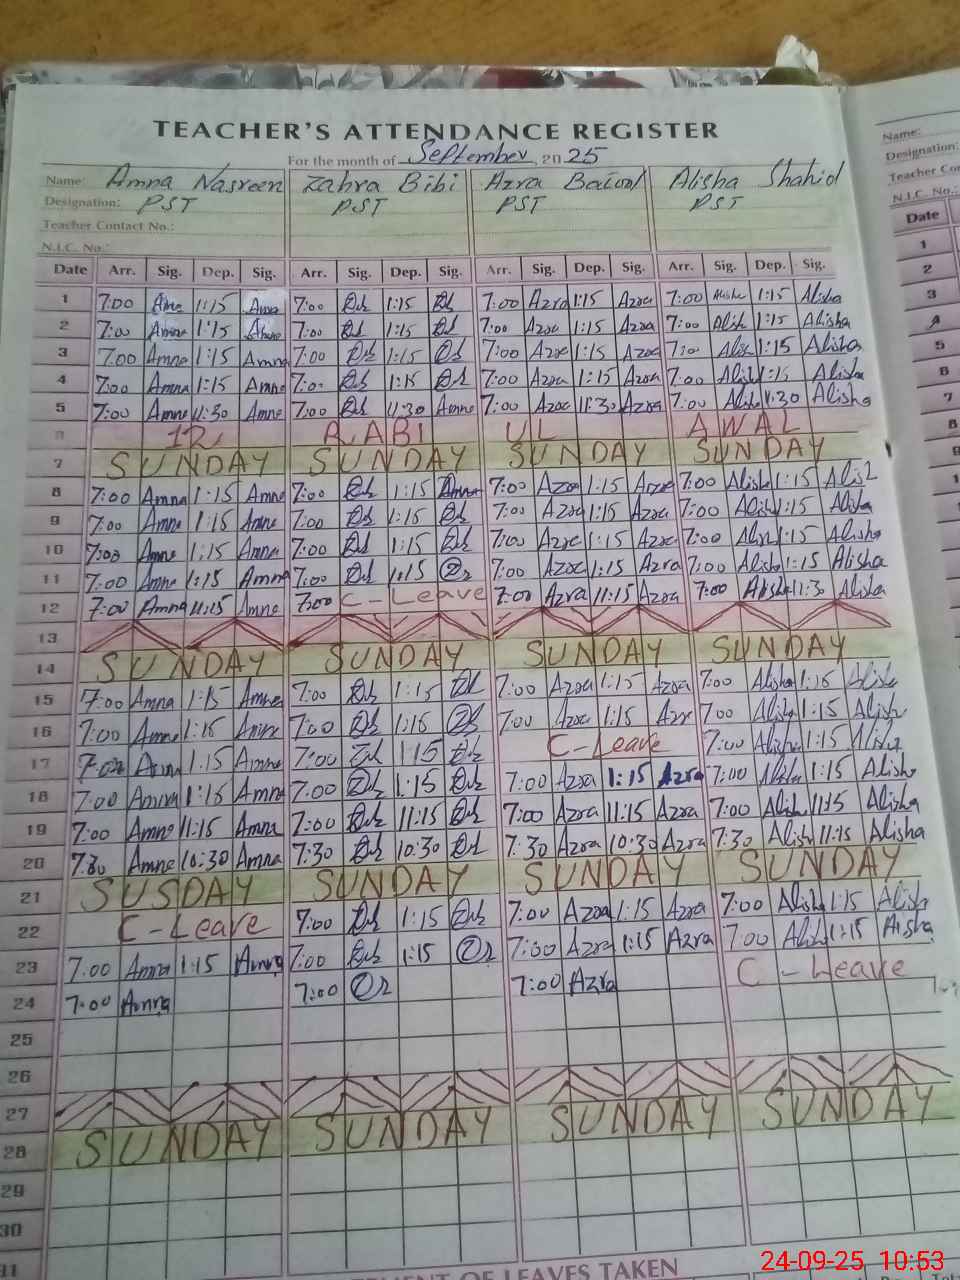 TEACHER'S ATTENDANCE REGISTER
For the month of September 2025
Name: Amna Nasreen Zahra Bibi Azra Alisha Shahid
Designation: PST PST PST PST
Teacher Contact No.:
N.I.C. No.:
Date Arr. Sig. Dep. Sig. Arr. Sig. Dep. Sig. Arr. Sig. Dep. Sig. Arr. Sig. Dep. Sig.
1 7:00 1:15 Amna 7:00 1:15 7:00 Azra 1:15 Azra 7:00 Alisha 1:15 Alisha
2 7:00 Amna 1:15 7:00 1:15 7:00 Azra 1:15 Azra 7:00 Alish 1:15 Alisha
3 7:00 Amna 1:15 Amna 7:00 1:15 7:00 Azra 1:15 Azra Alish 1:15 Alisha
4 7:00 Amna 1:15 Amna 1:15 7:00 Azra 1:15 Azra 7:00 Alish 1:15 Alisha
5 7:00 Amna 11:30 Amna 7:00 11:30 Amna 7:00 Azra 11:30 Azra 7:00 Alish 11:30 Alisha
12 RABI UL AWAL
7 SUNDAY SUNDAY SUNDAY SUNDAY
8 7:00 Amna 1:15 Amna 7:00 1:15 7:00 Azra 1:15 Azra 7:00 Alisha 1:15
9 7:00 Amna 1:15 Amna 7:00 1:15 7:00 Azra 1:15 Azra 7:00 Alish 1:15 Alisha
10 7:00 Amna 1:15 Amna 7:00 1:15 7:00 Azra 1:15 Azra 7:00 Alish 1:15 Alisha
11 7:00 Amna 1:15 Amna 7:00 1:15 7:00 Azra 1:15 Azra 7:00 Alisha 1:15 Alisha
12 7:00 Amna 11:15 Amna 7:00 C-Leave 7:00 Azra 11:15 Azra 7:00 Alisha 11:30 Alisha
13
14 SUNDAY SUNDAY SUNDAY SUNDAY
15 7:00 Amna 1:15 Amna 7:00 1:15 7:00 Azra 1:15 Azra 7:00 Alisha 1:15 Alish
16 7:00 Amna 1:15 Amna 7:00 1:15 7:00 Azra 1:15 Azr 7:00 Alisha 1:15 Alish
17 7:00 Amna 1:15 Amna 7:00 1:15 C-Leave 7:00 Alisha 1:15 Alisha
18 7:00 Amna 1:15 Amna 7:00 1:15 7:00 Azra 1:15 Azra 7:00 Alish 1:15 Alish
19 7:00 Amna 11:15 Amna 7:00 11:15 7:00 Azra 11:15 Azra 7:00 Alish 11:15 Alisha
20 7:30 Amna 10:30 Amna 7:30 10:30 7:30 Azra 10:30 Azra 7:30 Alish 11:15 Alisha
21 SUSDAY SUNDAY SUNDAY SUNDAY
22 C-Leave 7:00 1:15 7:00 Azra 1:15 Azra 7:00 Alish 1:15 Alish
23 7:00 Amna 1:15 Amna 7:00 1:15 7:00 Azra 1:15 Azra 7:00 Alish 1:15 Alisha
24 7:00 Amna 7:00 7:00 Azra C-Leave
25
26
27
28 SUNDAY SUNDAY SUNDAY SUNDAY
29
30
31
OF LEAVES TAKEN
Name:
Designation:
Teacher Contact
N.I.C. No.:
Date
1
2
3
4
5
6
7
8
9
24-09-25 10:53